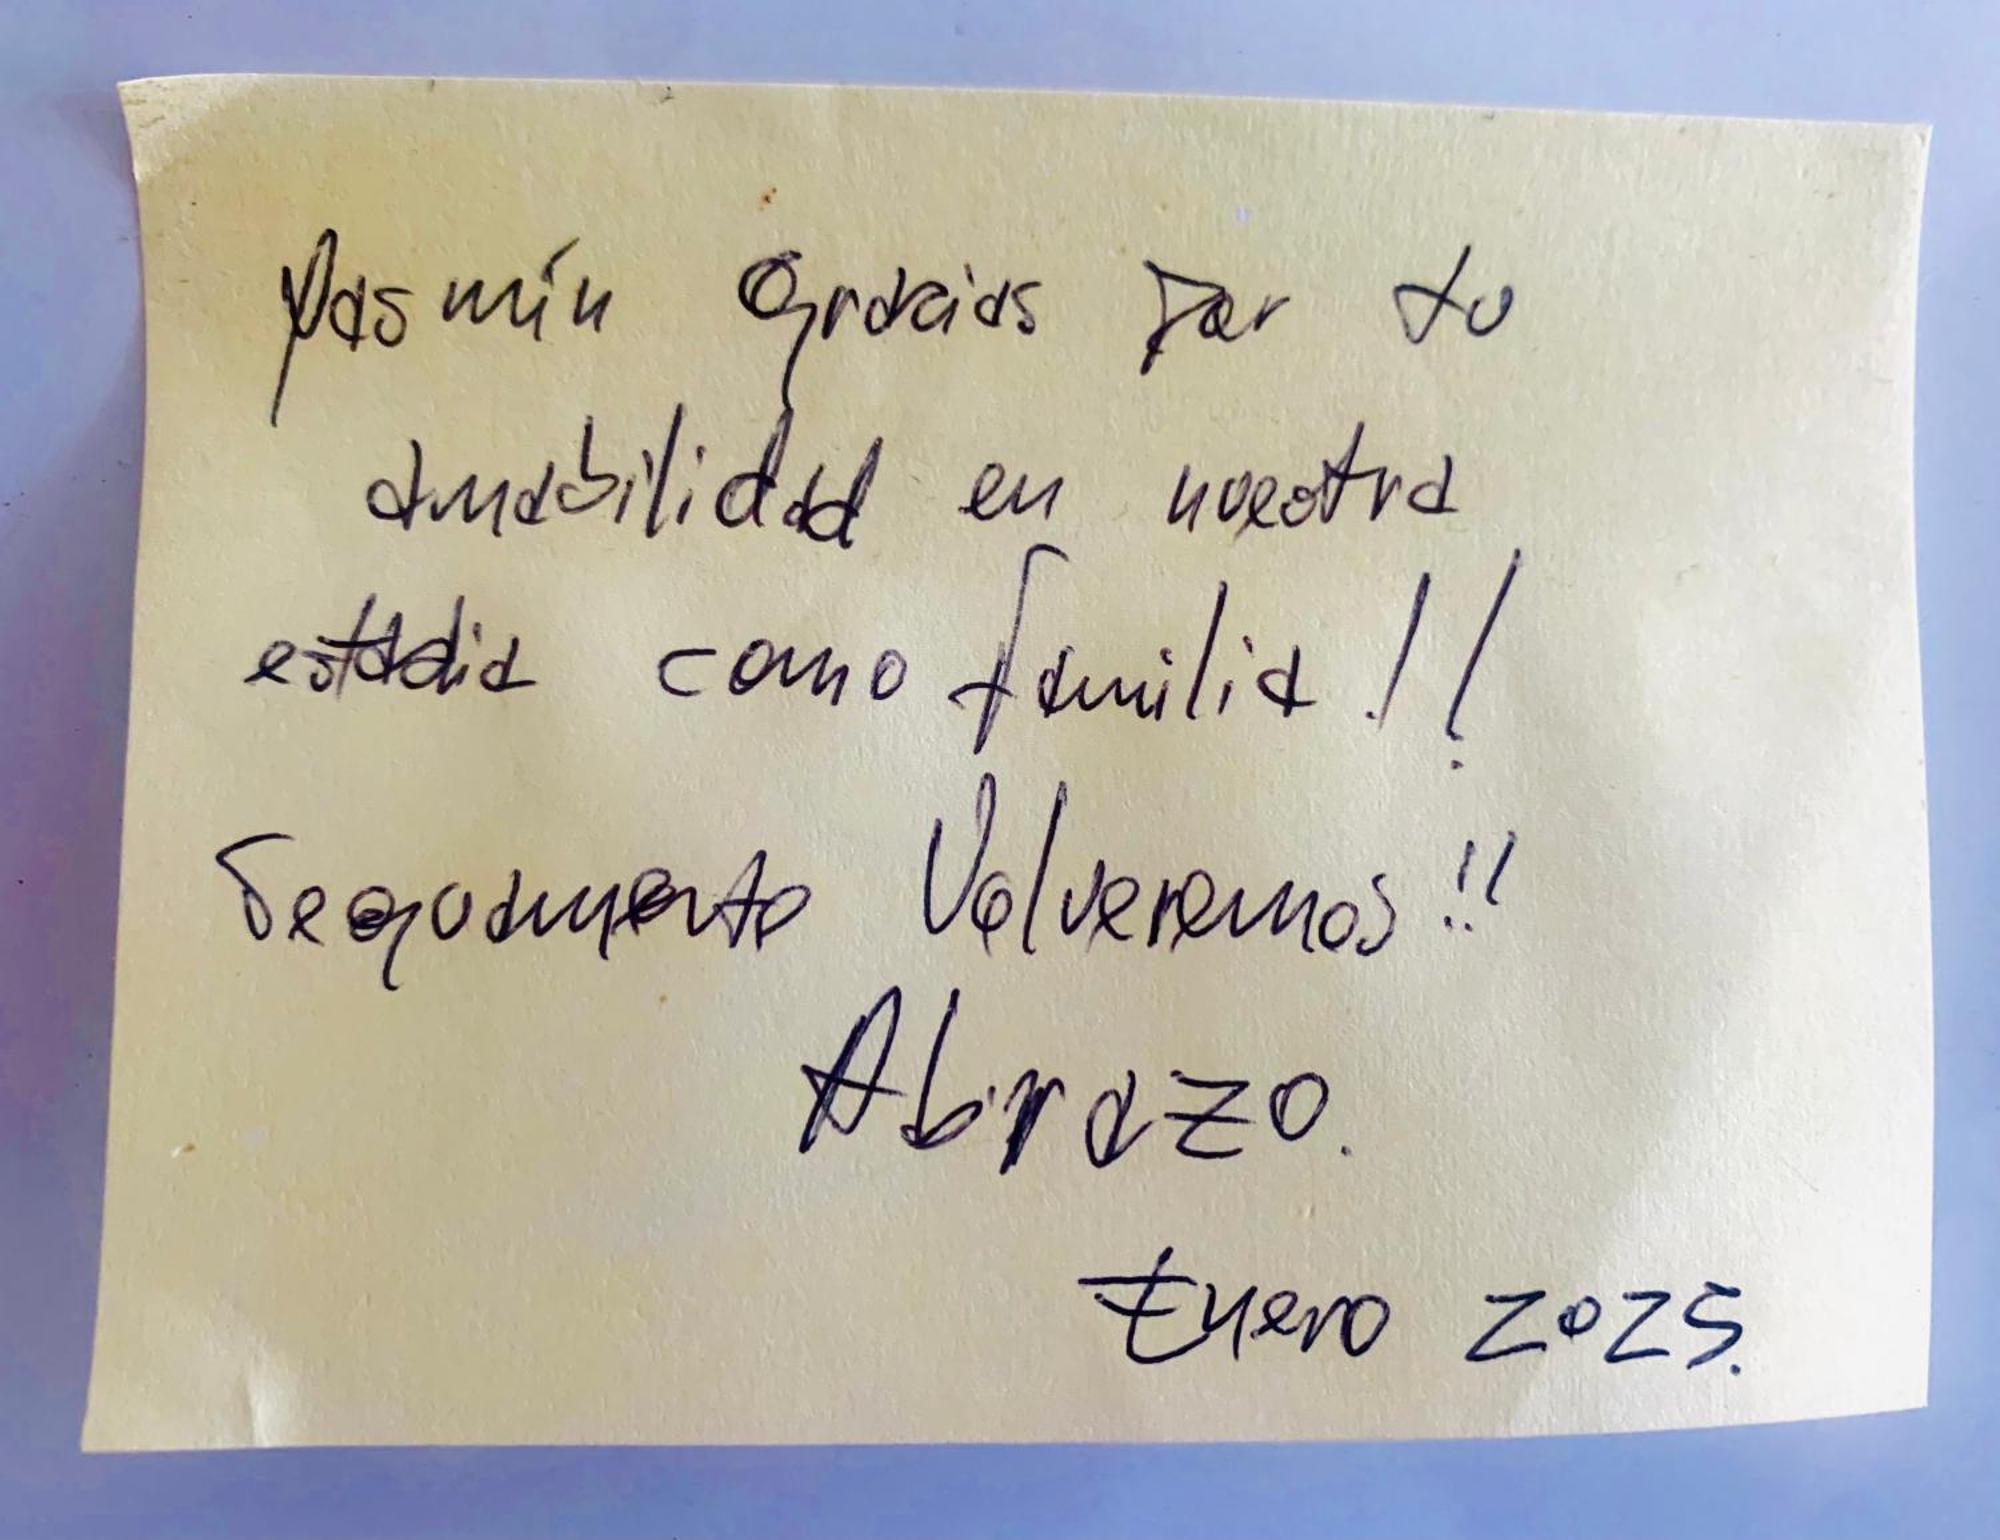 Yasmín Gracias por tu
amabilidad en nuestra
estadia como familia!!
Seguramente Volveremos!!
Abrazo.
Enero 2025.